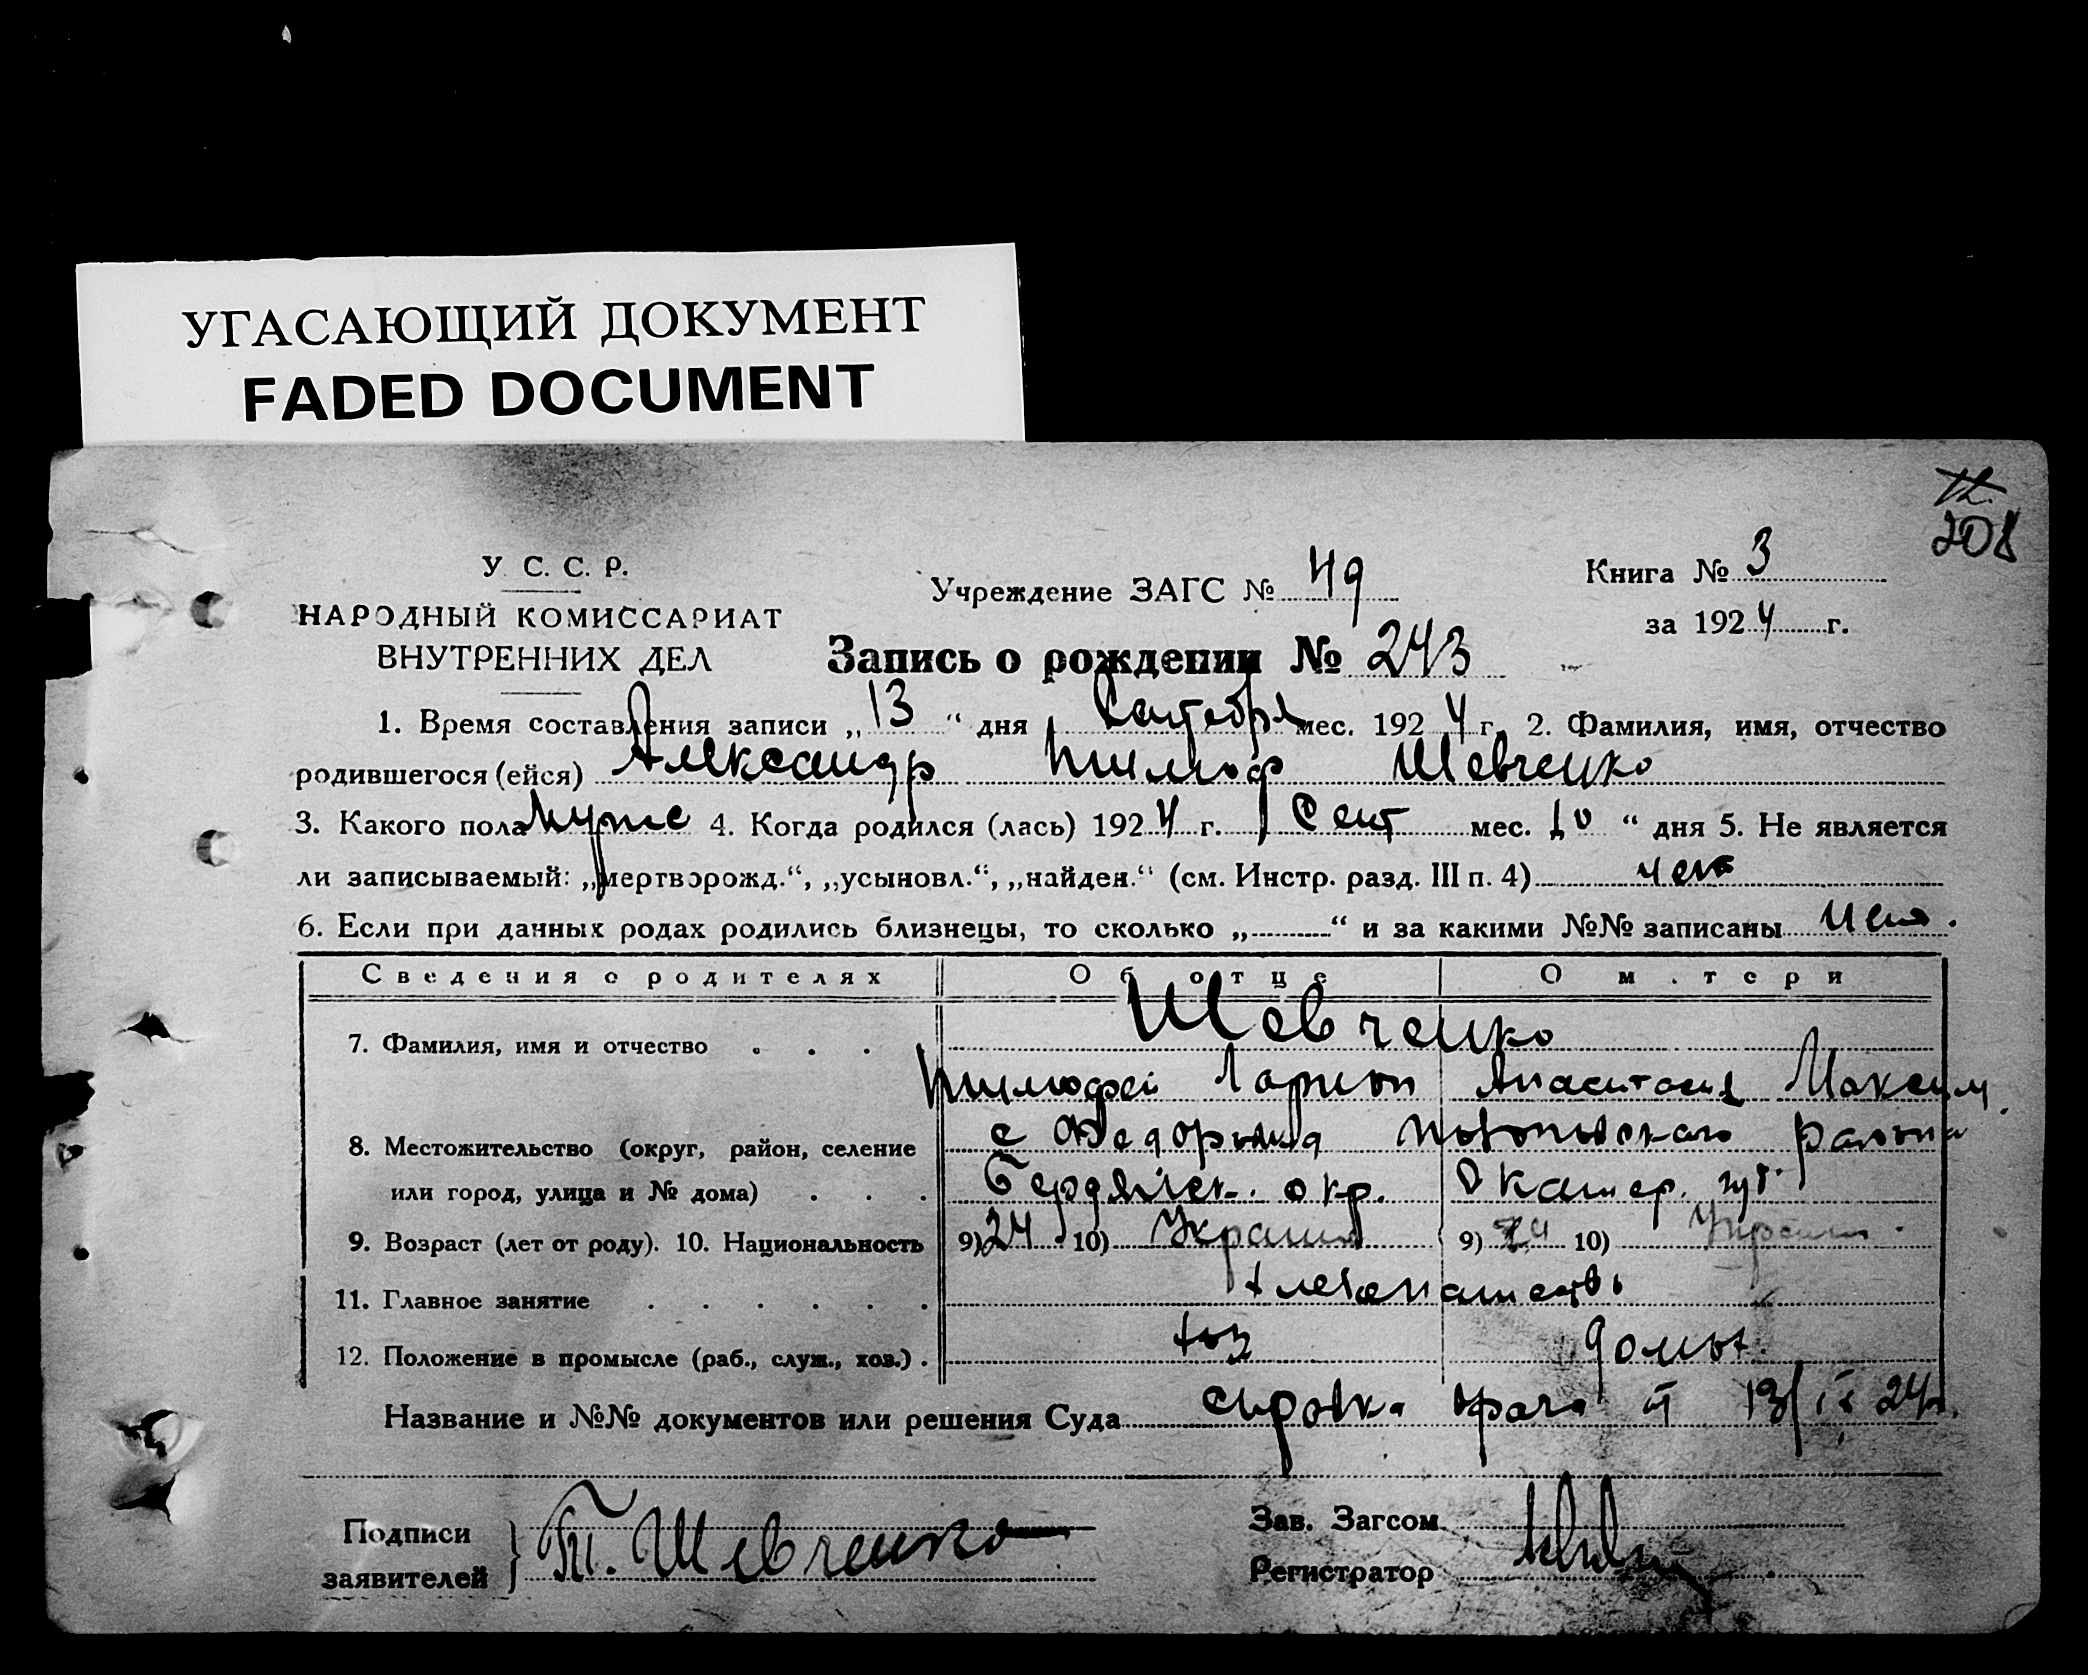 УГАСАЮЩИЙ ДОКУМЕНТ
FADED DOCUMENT
208
У. С. С. Р.
НАРОДНЫЙ КОМИССАРИАТ
ВНУТРЕННИХ ДЕЛ
Учреждение ЗАГС № 49
Книга № 3
за 1924 г.
Запись о рождении № 243
1. Время составления записи „13“ дня Сентября мес. 1924 г. 2. Фамилия, имя, отчество
родившегося (ейся) Александр Тимоф Шевченко
3. Какого пола Мужс 4. Когда родился (лась) 1924 г. Сент мес. 10 “ дня 5. Не является
ли записываемый: „мертворожд.“, „усыновл.“, „найден.“ (см. Инстр. разд. III п. 4) нет
6. Если при данных родах родились близнецы, то сколько „ “ и за какими №№ записаны нет.
Сведения о родителях Об отце О м.тери
7. Фамилия, имя и отчество . . . Шевченко
Тимофей Ларион Анастасия Максим.
8. Местожительство (округ, район, селение с Федоровка района
или город, улица и № дома) . . . Бердянск. окр. Екатер. губ.
9. Возраст (лет от роду). 10. Национальность 9) 24 10) Украин 9) 24 10) Украин.
11. Главное занятие . . . . . . хлебопашество
12. Положение в промысле (раб., служ., хоз.) . хоз домох.
Название и №№ документов или решения Суда справка врача от 13/IX 24г.
Подписи
заявителей } Т. Шевченко
Зав. Загсом
Регистратор